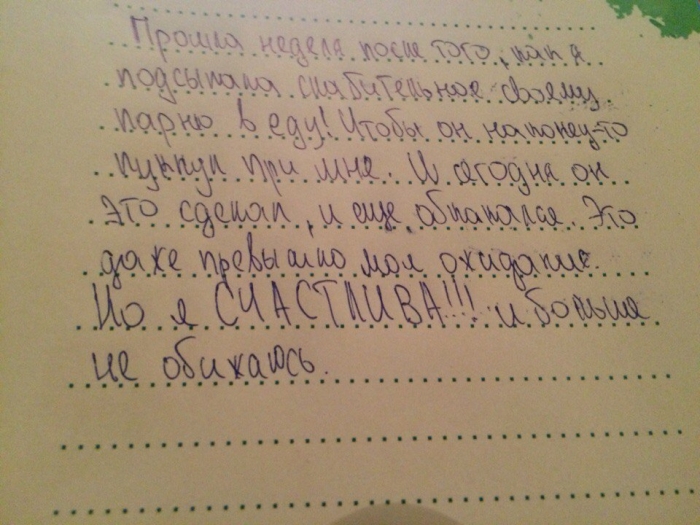 Прошла неделя после того, как я
подсыпала слабительное своему
парню в еду! Чтобы он наконец-то
пукнул при мне. И сегодня он
это сделал, и еще обкакался. Это
даже превышло мои ожидание.
Но я СЧАСТЛИВА!!! и больше
не обижаюсь.